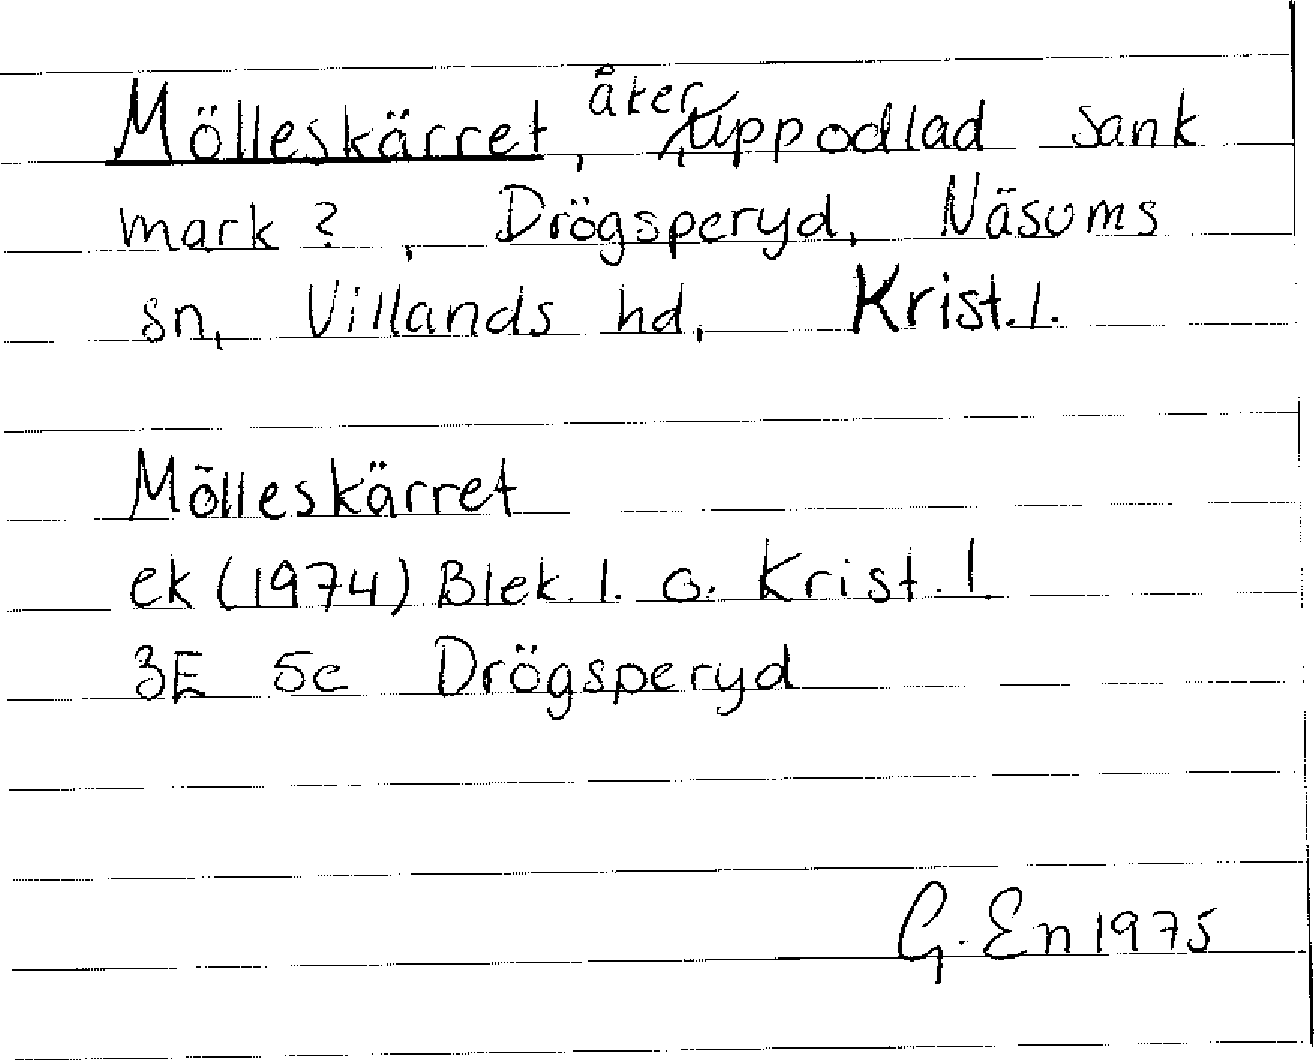 Mölleskärret, åker, uppodlad sank
mark?, Drögsperyd, Näsums
sn, Villands hd, Krist. l.
Mölleskärret
ek (1974) Blek. l. o. Krist. l.
3E 5c Drögsperyd
G. En 1975